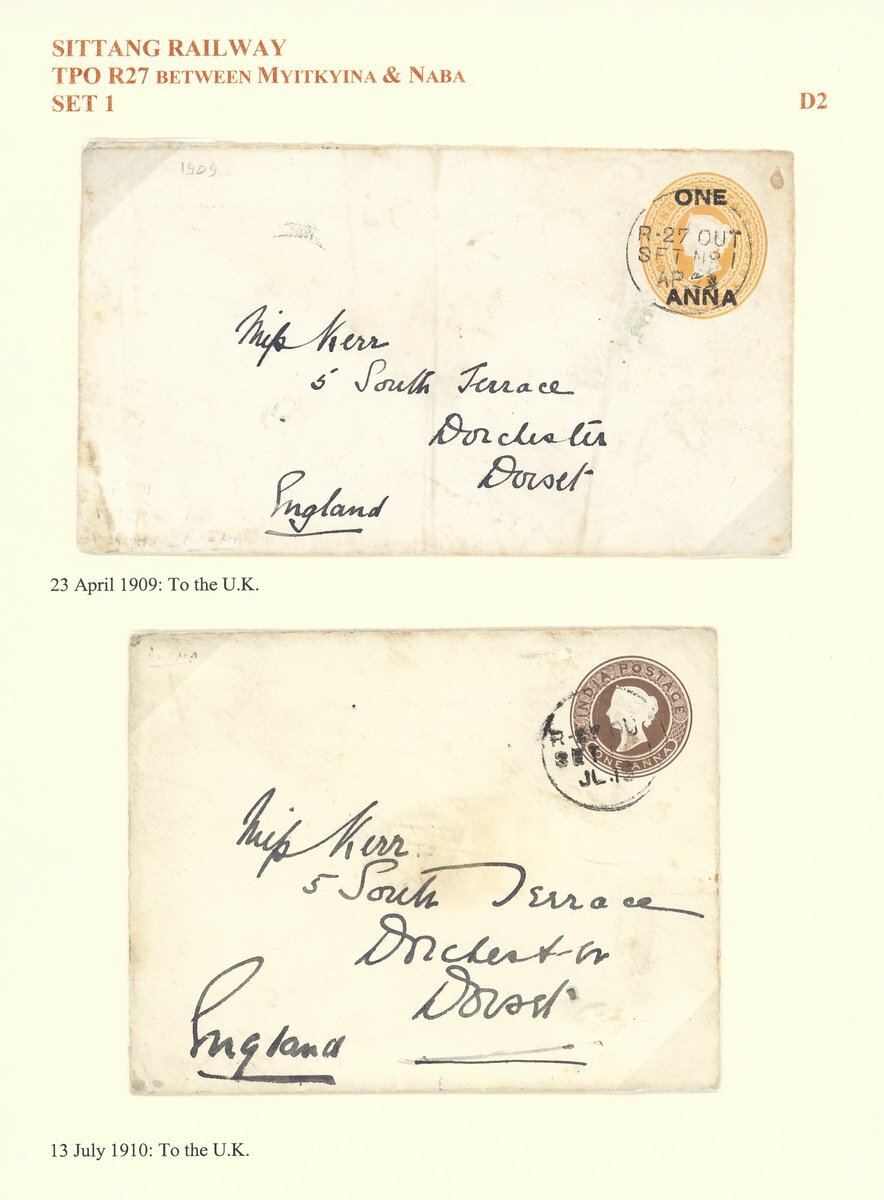 SITTANG RAILWAY
TPO R27 BETWEEN MYITKYINA & NABA
SET 1
D2
1909
ONE
R-27 OUT
SET Nº 1
AP
ANNA
Miss Kerr
5 South Terrace
Dorchester
Dorset
England
23 April 1909: To the U.K.
INDIA POSTAGE
ONE ANNA
R-27 OUT
SET
JL.13
Miss Kerr
5 South Terrace
Dorchester
Dorset
England
13 July 1910: To the U.K.